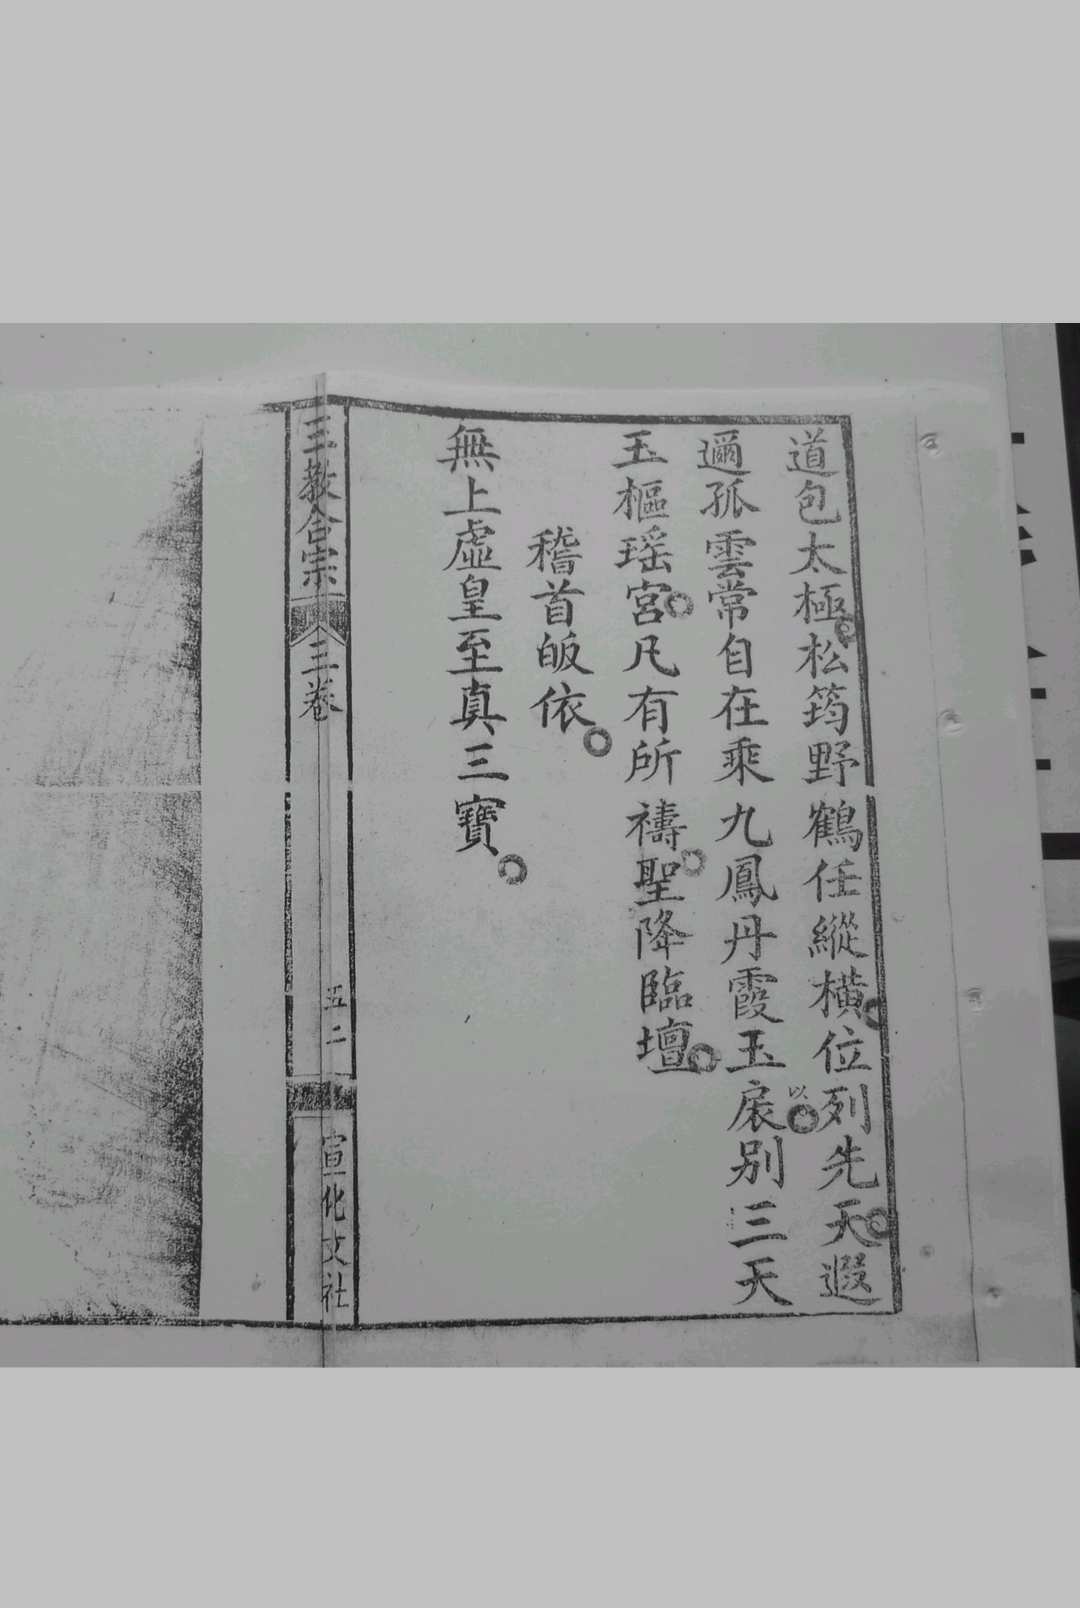 道包太極松筠野鶴任縱橫位列先天遐
邇孤雲常自在乘九鳳丹霞玉扆別三天
以
玉樞瑶宮凡有所禱聖降臨壇
稽首皈依
無上虛皇至真三寶
三教合宗 三卷 五二 宣化文社